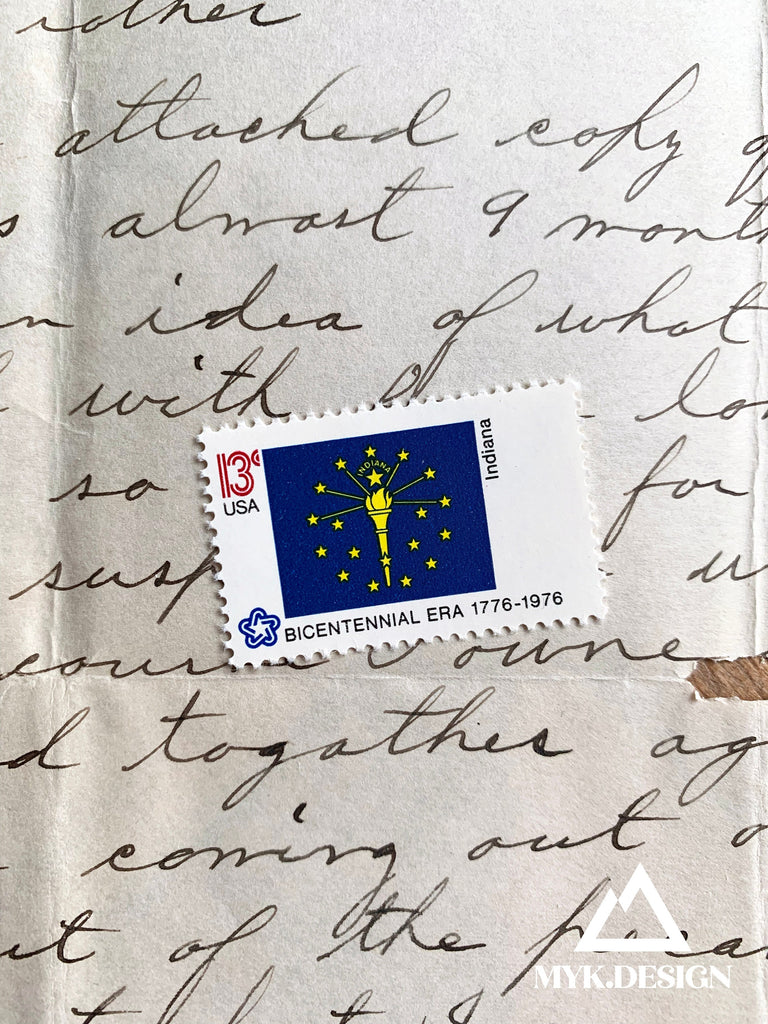 rother
attached copy of
s almost 9 month
n idea of what
with lo
13c
USA
INDIANA
Indiana
so for
susp
BICENTENNIAL ERA 1776-1976
cour owne
d togather ag
coming out o
it of the
MYK.DESIGN